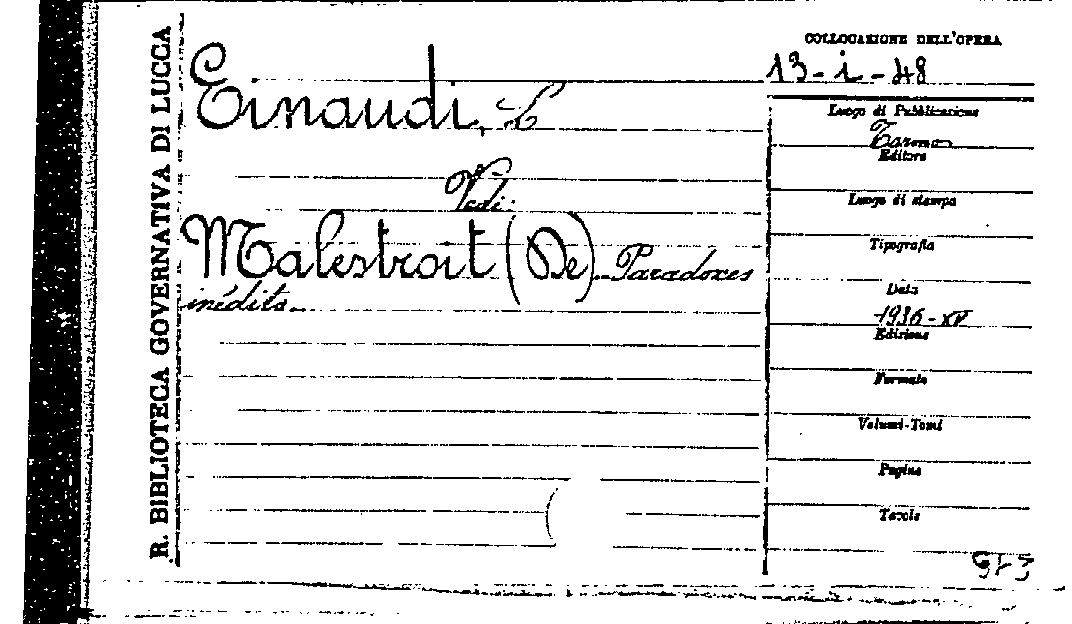 R. BIBLIOTECA GOVERNATIVA DI LUCCA
Einaudi, L
Vedi:
Malestroit (De) Paradoxes
inédits.
COLLOCAZIONE DELL'OPERA
13-i-48
Luogo di Pubblicazione
Editore
Luogo di stampa
Tipografia
Data
1936-XV
Edizione
Formato
Volumi-Tomi
Pagine
Tavole